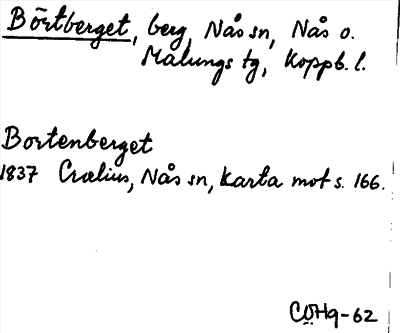 Börtberget, berg, Nås sn, Nås o.
Malungs tg, Koppb. l.
Bortenberget
1837 Crælius, Nås sn, Karta mot s. 166.
CÖHg-62